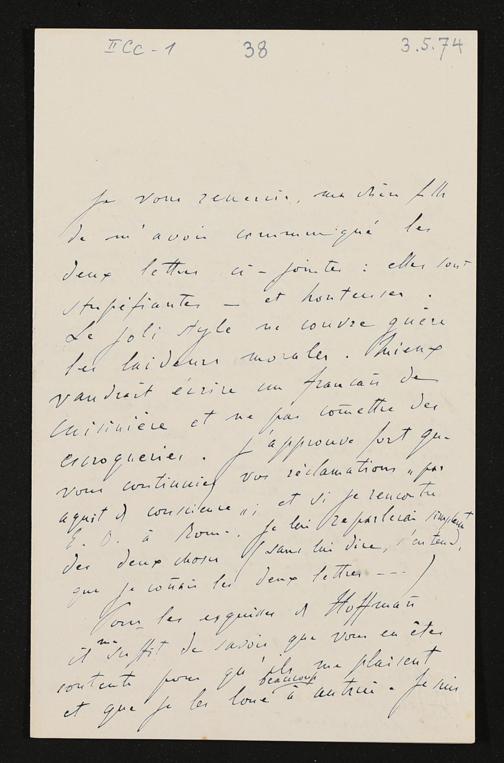 II CC - 1 38 3.5.74
Je vous remercie, ma chère fille
de m'avoir communiqué les
deux lettres ci-jointes : elles sont
stupéfiantes — et honteuses.
Le joli style ne couvre guère
les laideurs morales. Mieux
vaudrait écrire un français de
cuisinière et ne pas comettre des
escroqueries. J'approuve fort que
vous continuiez vos réclamations „par
aquit de conscience"; et si je rencontre
E. O. à Rome, je lui reparlerai simplement
des deux choses (sans lui dire, s'entend,
que je connais les deux lettres ---)
Pour les esquisses de Hoffmann
il me suffit de savoir que vous en êtes
contente pour qu'ils me plaisent
beaucoup
et que je les loue à autrui. Je suis